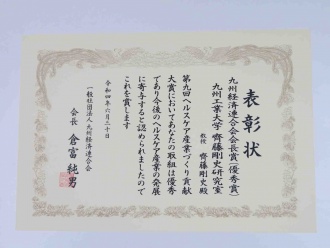 表彰状
九州経済連合会会長賞(優秀賞)
九州工業大学 齊藤剛史研究室
教授 齊藤剛史殿
第九回ヘルスケア産業づくり貢献
大賞においてあなたの取組は優秀
であり今後のヘルスケア産業の発展
に寄与すると認められましたので
これを賞します
令和四年六月三十日
一般社団法人九州経済連合会
会長 倉富純男